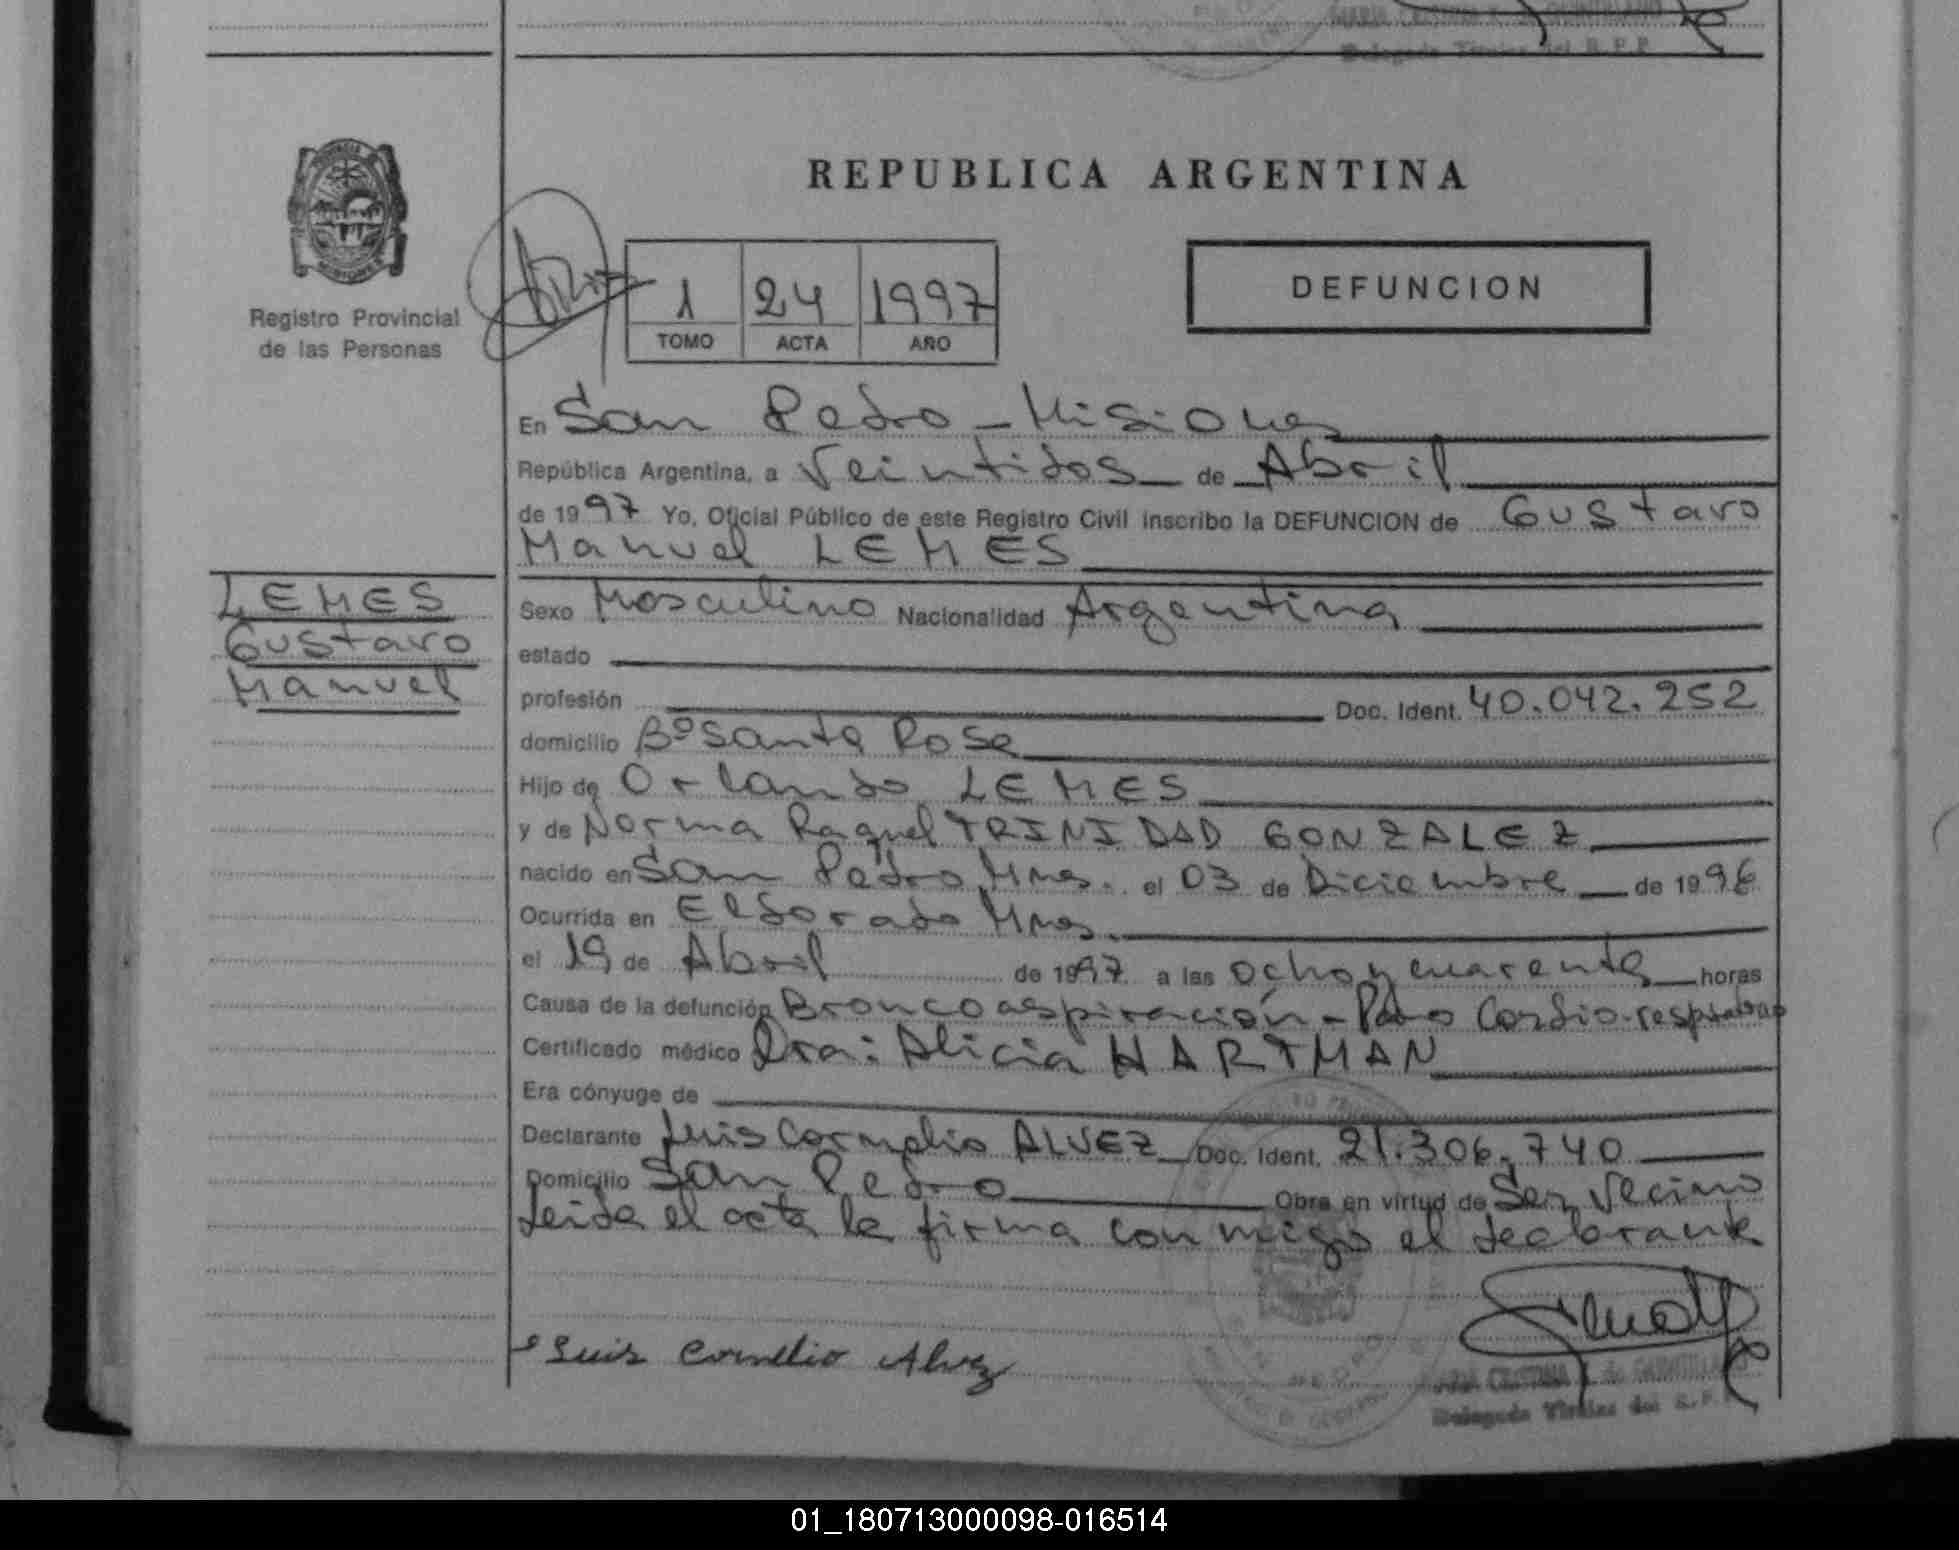 REPUBLICA ARGENTINA
Registro Provincial
de las Personas
1 24 1997
TOMO ACTA AÑO
DEFUNCION
En San Pedro - Misiones
República Argentina, a Veintidos de Abril
de 1997 Yo, Oficial Público de este Registro Civil inscribo la DEFUNCION de Gustavo
Manuel LEMES
LEMES
Gustavo
Manuel
Sexo Masculino Nacionalidad Argentina
estado
profesión Doc. Ident. 40.042.252
domicilio Bº Santa Rosa
Hijo de Orlando LEMES
y de Norma Raquel TRINIDAD GONZALEZ
nacido en San Pedro Mnes. el 03 de Diciembre de 1996
Ocurrida en Eldorado Mnes.
el 19 de Abril de 1997 a las ocho y cuarenta horas
Causa de la defunción Broncoaspiración - Paro Cardio-respiratorio
Certificado médico Dra: Alicia HARTMAN
Era cónyuge de
Declarante Luis Cornelio ALVEZ Doc. Ident. 21.306.740
Domicilio San Pedro Obra en virtud de Ser Vecino
Leida el acta la firma conmigo el declarante
Luis Cornelio Alvez
MARIA CRISTINA de QUINTILIANO
Delegada Titular del R.P.P.
01_180713000098-016514